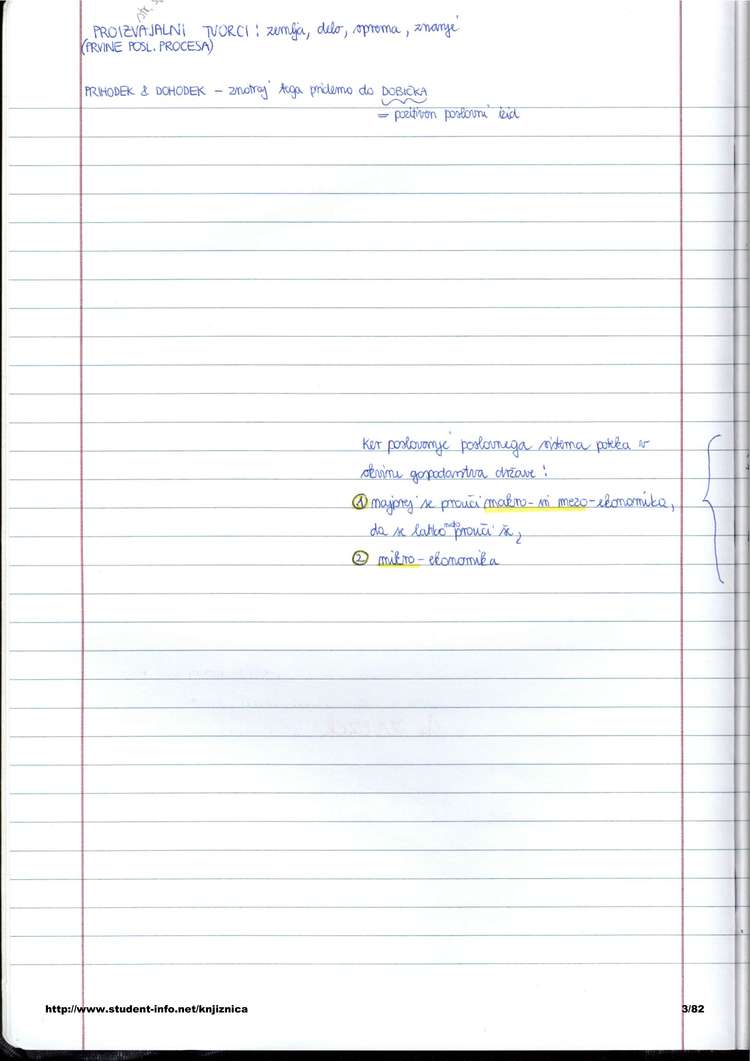 PROIZVAJALNI TVORCI : zemlja, delo, oprema, znanje
(PRVINE POSL. PROCESA)
PRIHODEK & DOHODEK – znotraj tega pridemo do DOBIČKA
= pozitiven poslovni izid
Ker poslovanje poslovnega sistema poteka v
okviru gospodarstva države :
① najprej se prouči makro- in mezo-ekonomika,
da se lahko nato prouči še,
② mikro-ekonomika
http://www.student-info.net/knjiznica
3/82